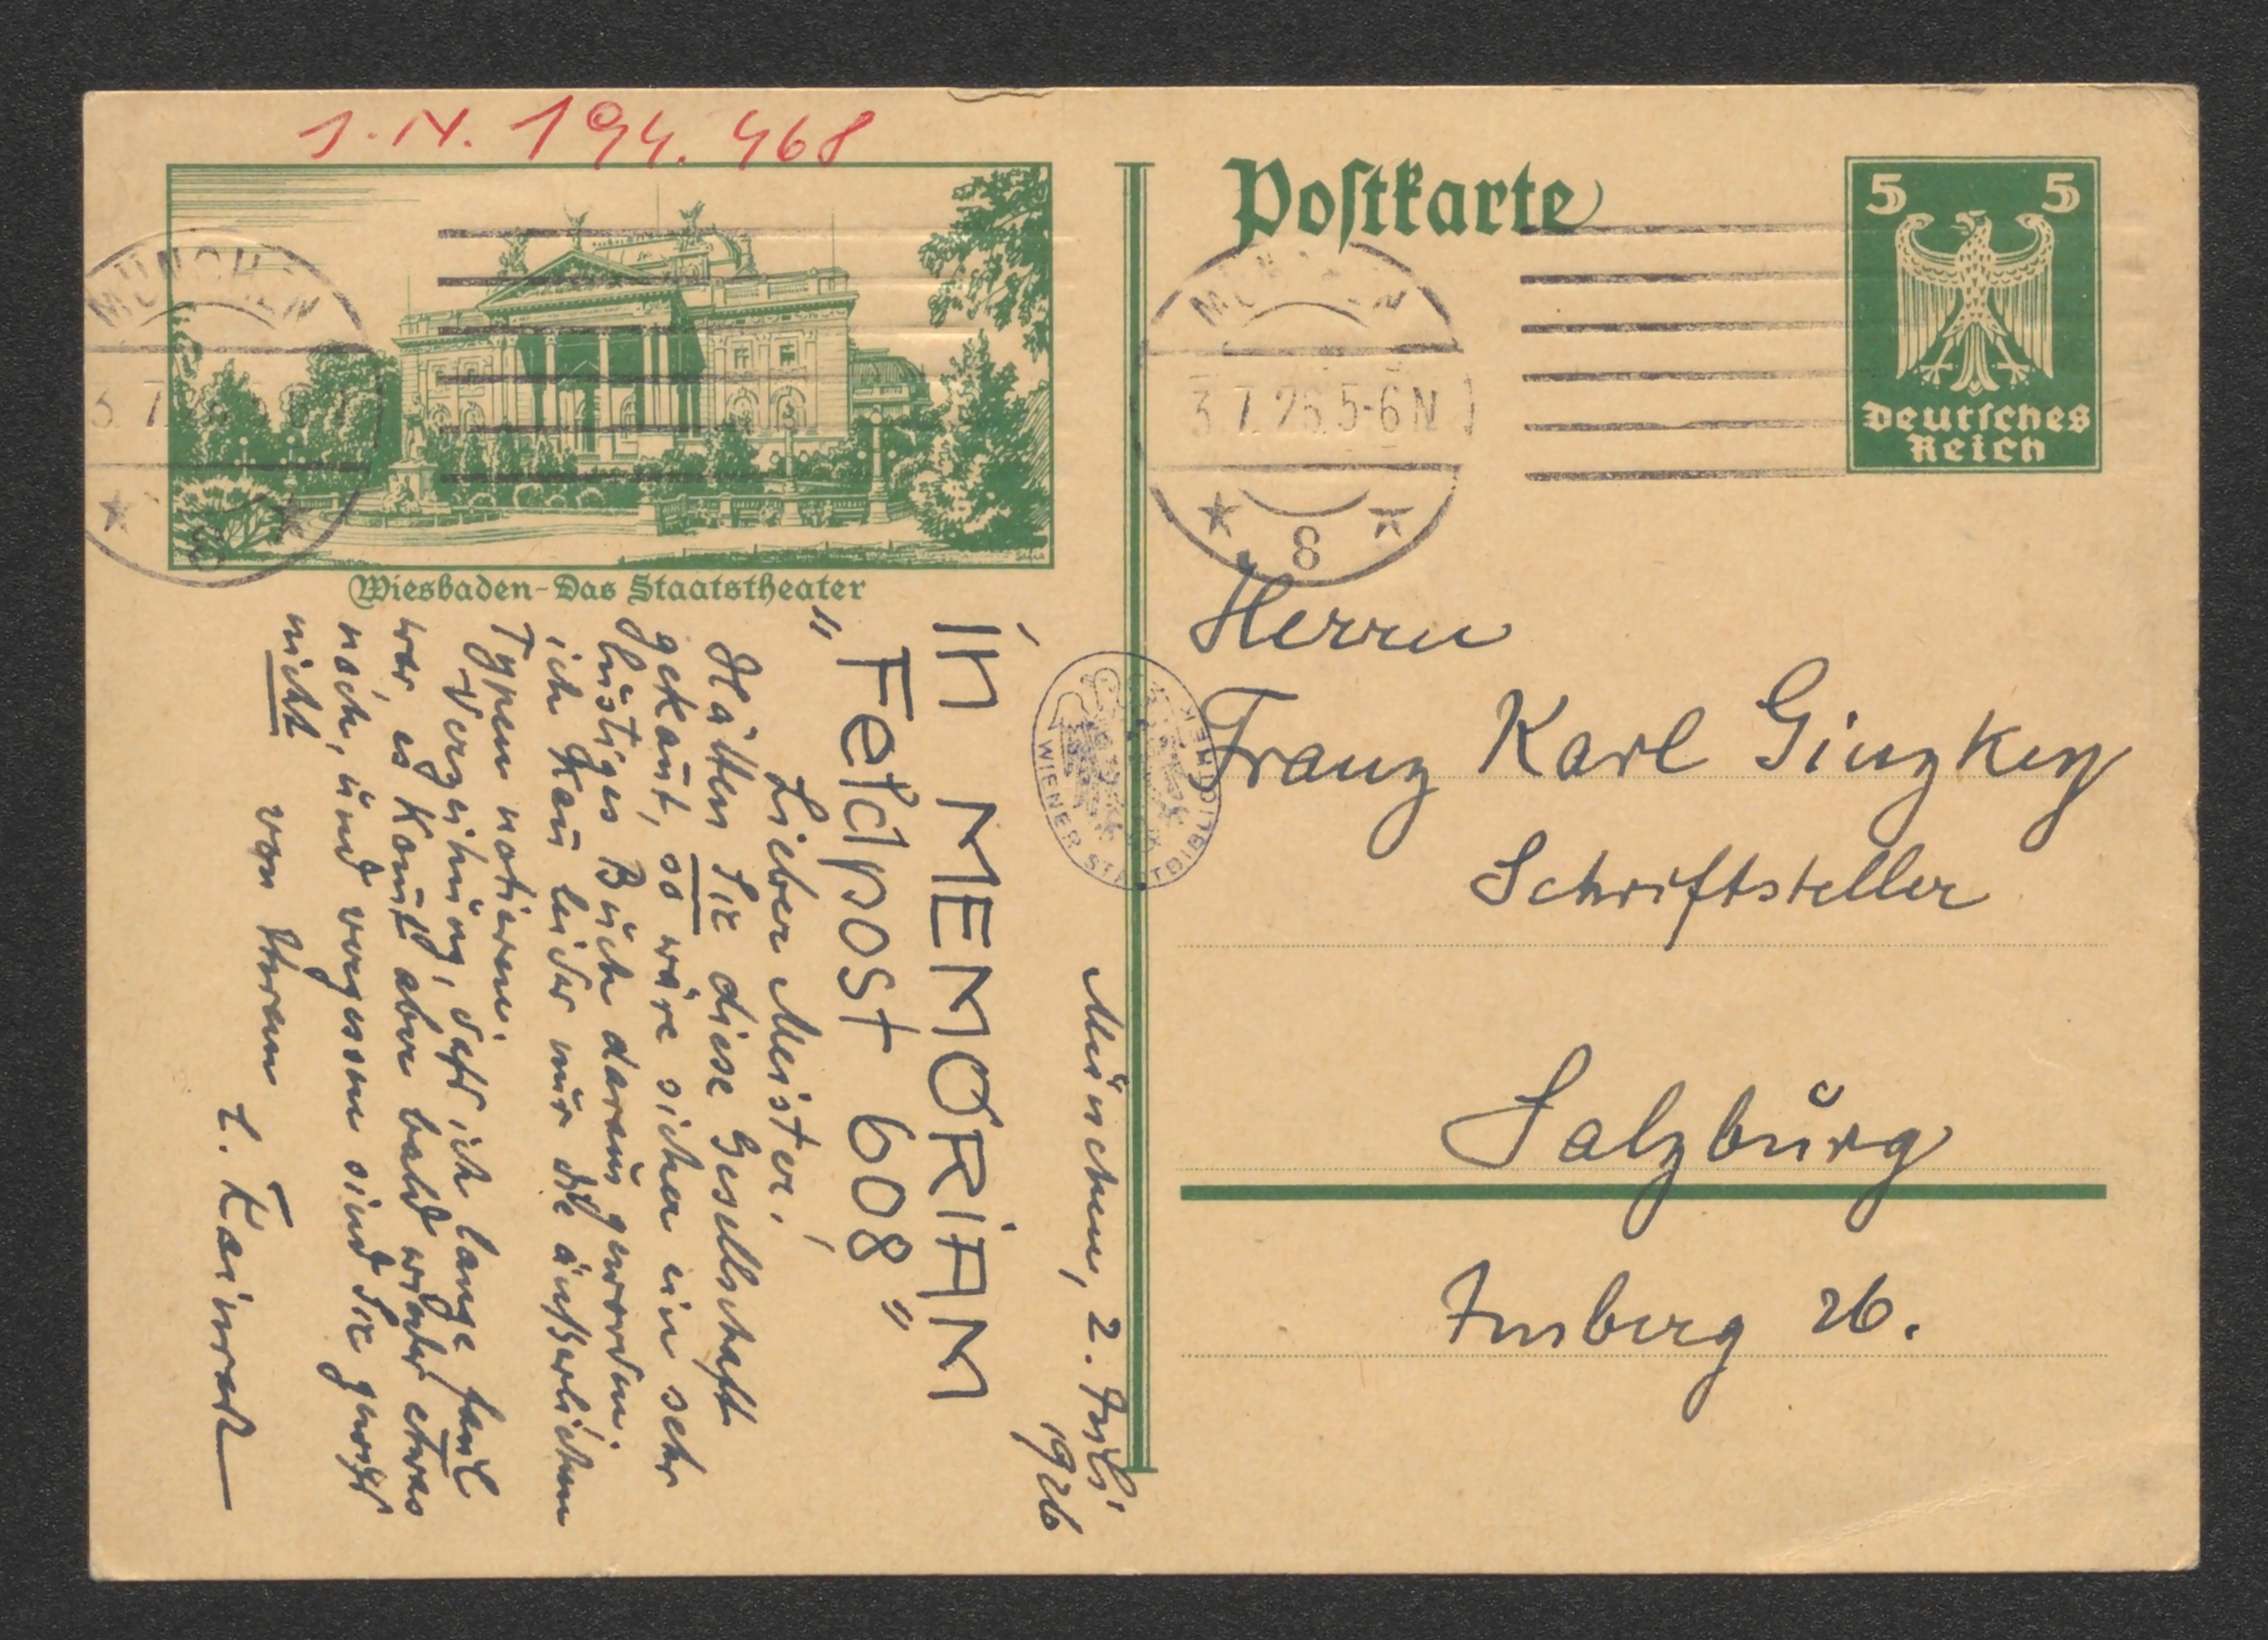 J.N. 194.468
Wiesbaden-Das Staatstheater
MÜNCHEN
8
Postkarte
MÜNCHEN
3.7.26.5-6N
8
5 5
Deutsches
Reich
Herrn
Franz Karl Ginzkey
Schriftsteller
Salzburg
Imberg 26.
WIENER STADTBIBLIOTHEK
München, 2. Juli
1926
IN MEMORIAM
"Feldpost 608"
Lieber Meister,
Hätten Sie diese Gesellschaft
gekannt, so wäre sicher ein sehr
lustiges Buch daraus geworden.
ich kann leider nur die äußerlichen
Typen notieren.
Verzeihung, daß ich lange faul
war, es kommt aber bald wieder etwas
nach, und vergessen sind Sie gewiß
nicht
von Ihrem L. Kainradl